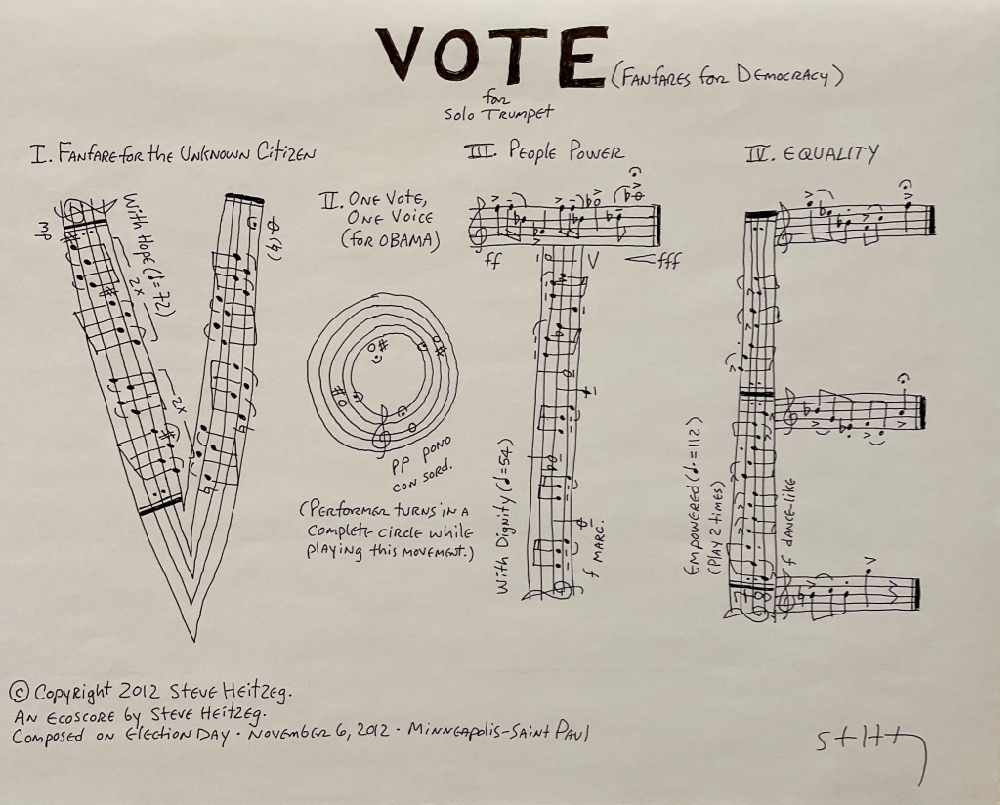 VOTE (FANFARES FOR DEMOCRACY)
for
SOLO TRUMPET
I. FANFARE FOR THE UNKNOWN CITIZEN
mp
WITH HOPE (♩=72)
2X
2X
II. ONE VOTE,
ONE VOICE
(FOR OBAMA)
PP
CON SORD.
(PERFORMER TURNS IN A
COMPLETE CIRCLE WHILE
PLAYING THIS MOVEMENT.)
III. PEOPLE POWER
ff
fff
WITH DIGNITY (♩=54)
f MARC.
IV. EQUALITY
EMPOWERED (♩.=112)
(PLAY 2 TIMES)
f DANCE-LIKE
7 8
© COPYRIGHT 2012 STEVE HEITZEG.
AN ECOSCORE BY STEVE HEITZEG.
COMPOSED ON ELECTION DAY · NOVEMBER 6, 2012 · MINNEAPOLIS-SAINT PAUL